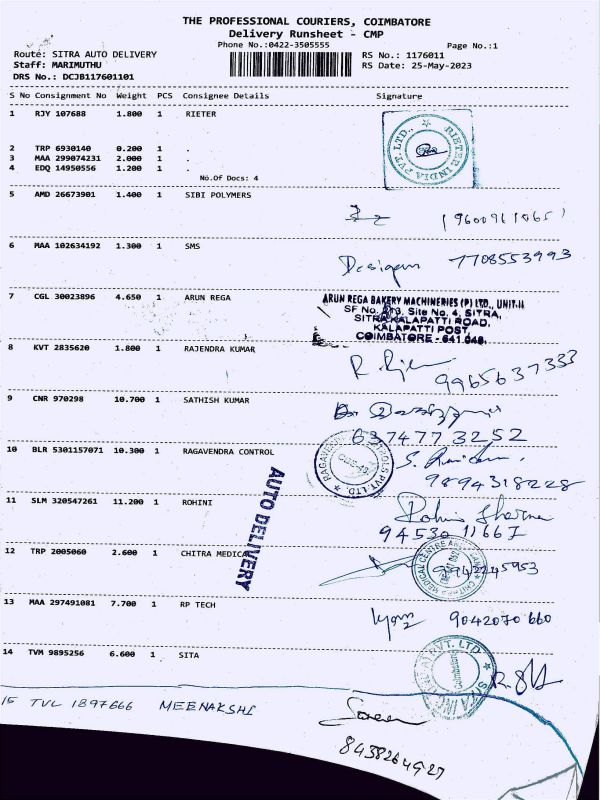 THE PROFESSIONAL COURIERS, COIMBATORE
Delivery Runsheet - CMP
Phone No.:0422-3505555
Page No.:1
Route: SITRA AUTO DELIVERY
RS No.: 1176011
Staff: MARIMUTHU
RS Date: 25-May-2023
DRS No.: DCJB117601101
S No Consignment No Weight PCS Consignee Details Signature
1 RJY 107688 1.800 1 RIETER
RIETER INDIA PVT. LTD.,
2 TRP 6930140 0.200 1 .
3 MAA 299074231 2.000 1 .
4 EDQ 14950556 1.200 1 .
No.Of Docs: 4
5 AMD 26673901 1.400 1 SIBI POLYMERS
6 MAA 102634192 1.300 1 SMS
7708553993
7 CGL 30023896 4.650 1 ARUN REGA
ARUN REGA BAKERY MACHINERIES (P) LTD., UNIT-II
SF No. 213, Site No. 4, SITRA,
SITRA KALAPATTI ROAD,
KALAPATTI POST,
COIMBATORE - 641 048.
8 KVT 2835620 1.800 1 RAJENDRA KUMAR
9965637333
9 CNR 970298 10.700 1 SATHISH KUMAR
6374773252
10 BLR 5301157071 10.300 1 RAGAVENDRA CONTROL
9894318228
AUTO DELIVERY
11 SLM 320547261 11.200 1 ROHINI
Rohini Sharma
94530 11667
12 TRP 2005060 2.600 1 CHITRA MEDICAL
9942245953
13 MAA 297491081 7.700 1 RP TECH
9042070660
14 TVM 9895256 6.600 1 SITA
15 TVL 1897666 MEENAKSHI
8438264927